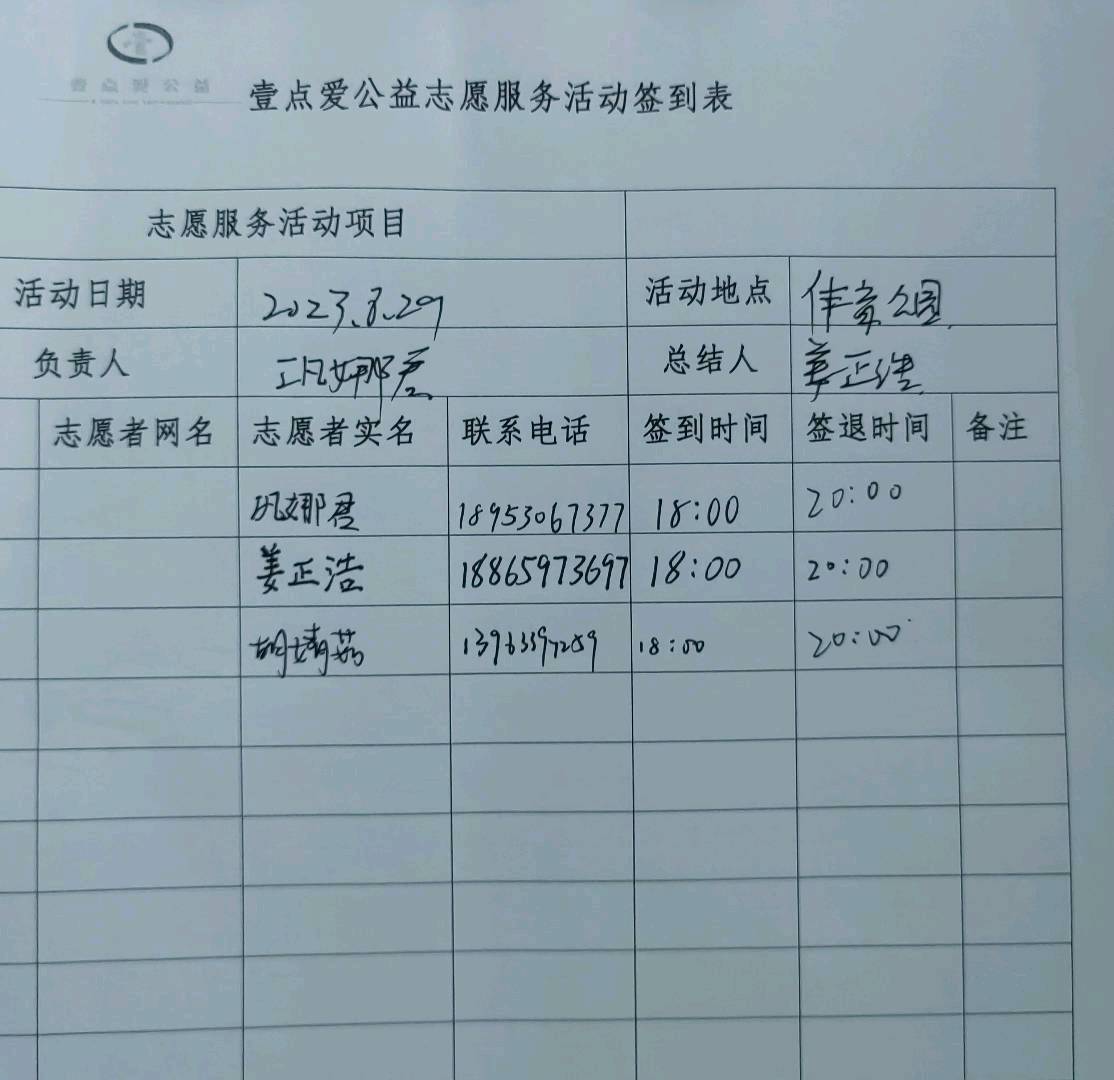 壹点爱公益
壹点爱公益志愿服务活动签到表
志愿服务活动项目
活动日期 2023.8.29 活动地点 体育公园
负责人 巩娜君 总结人 姜正浩
志愿者网名 志愿者实名 联系电话 签到时间 签退时间 备注
巩娜君 18953067377 18:00 20:00
姜正浩 18865973697 18:00 20:00
胡靖茹 18:00 20:00